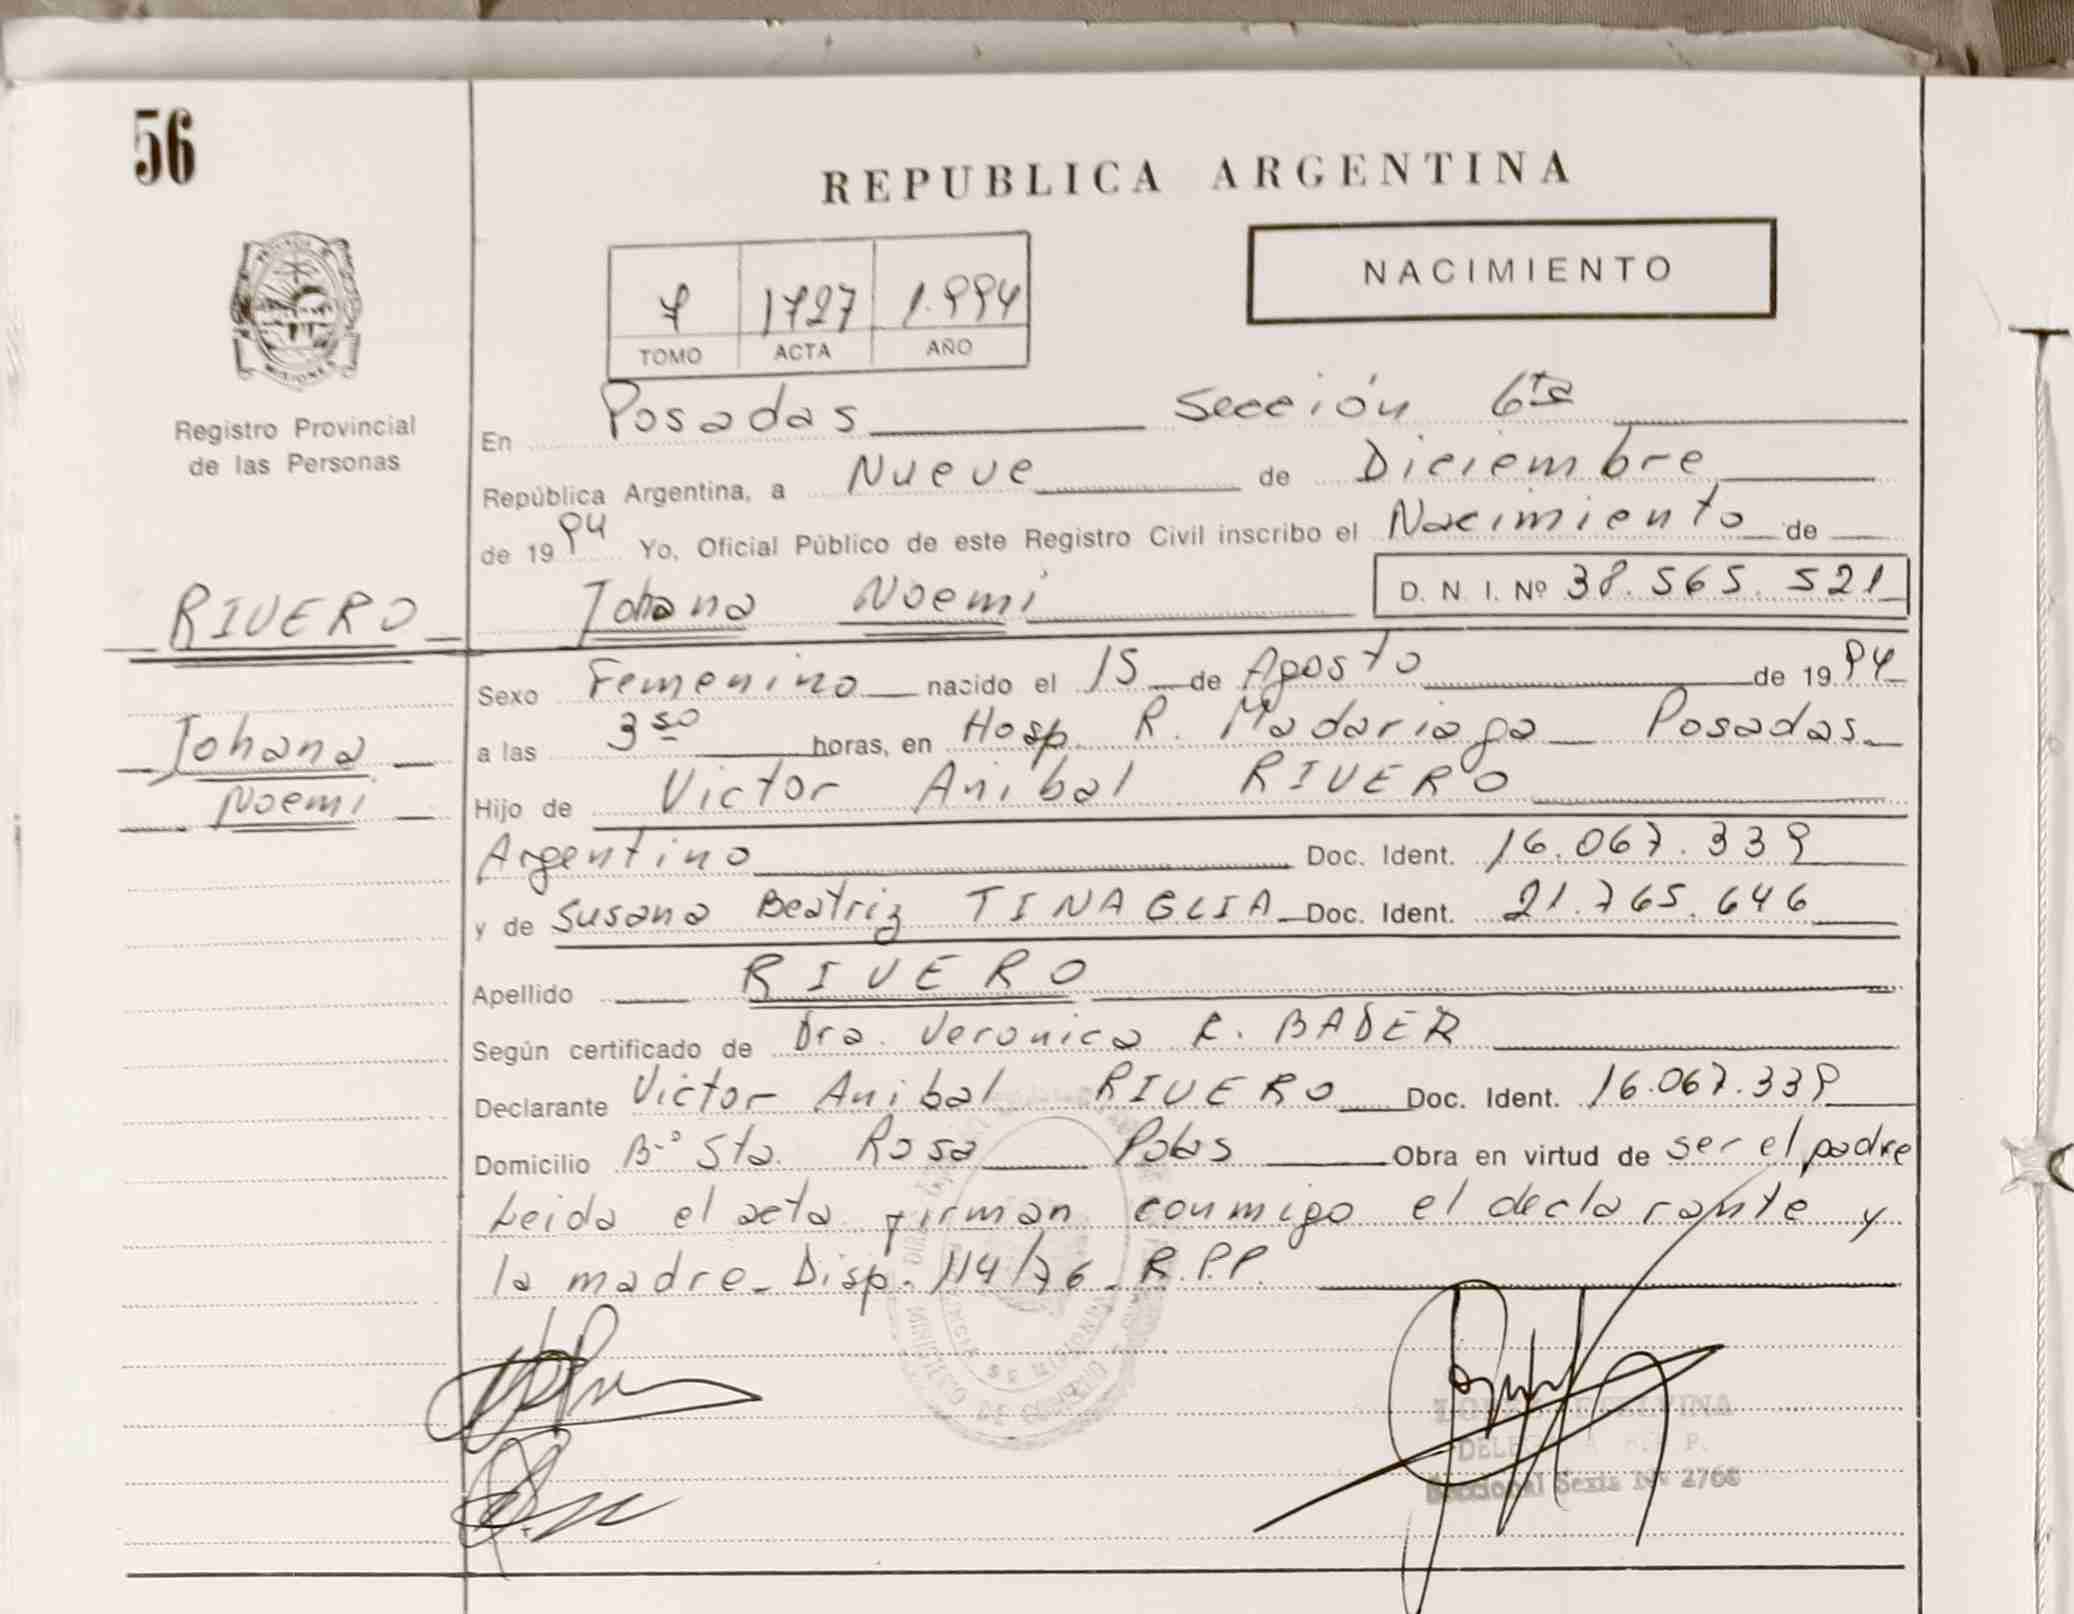 56
REPUBLICA ARGENTINA
NACIMIENTO
7 1727 1.994
TOMO ACTA AÑO
MISIONES
Registro Provincial
de las Personas
En Posadas Sección 6ta
República Argentina, a Nueve de Diciembre
de 1994 Yo, Oficial Público de este Registro Civil inscribo el Nacimiento de
RIVERO Johana Noemi D. N. I. Nº 38.565.521
Sexo Femenino nacido el 15 de Agosto de 1994
Johana a las 3 50 horas, en Hosp. R. Madariaga Posadas
Noemi Hijo de Victor Anibal RIVERO
Argentino Doc. Ident. 16.067.339
y de Susana Beatriz TINAGLIA Doc. Ident. 21.765.646
Apellido RIVERO
Según certificado de Dra. Veronica R. BADER
Declarante Victor Anibal RIVERO Doc. Ident. 16.067.339
Domicilio B-º Sta. Rosa Pdas Obra en virtud de ser el padre
Leida el acta firman conmigo el declarante y
la madre Disp. 114/76 R.P.P.
Seccional Sexta Nº